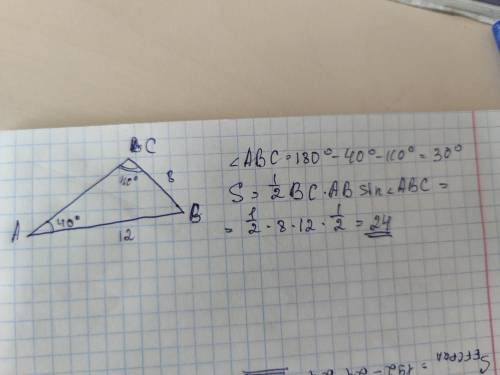 C
110°
8
A
40°
B
12
∠ABC = 180° - 40° - 110° = 30°
S = 1/2 BC · AB sin∠ABC =
= 1/2 · 8 · 12 · 1/2 = 24